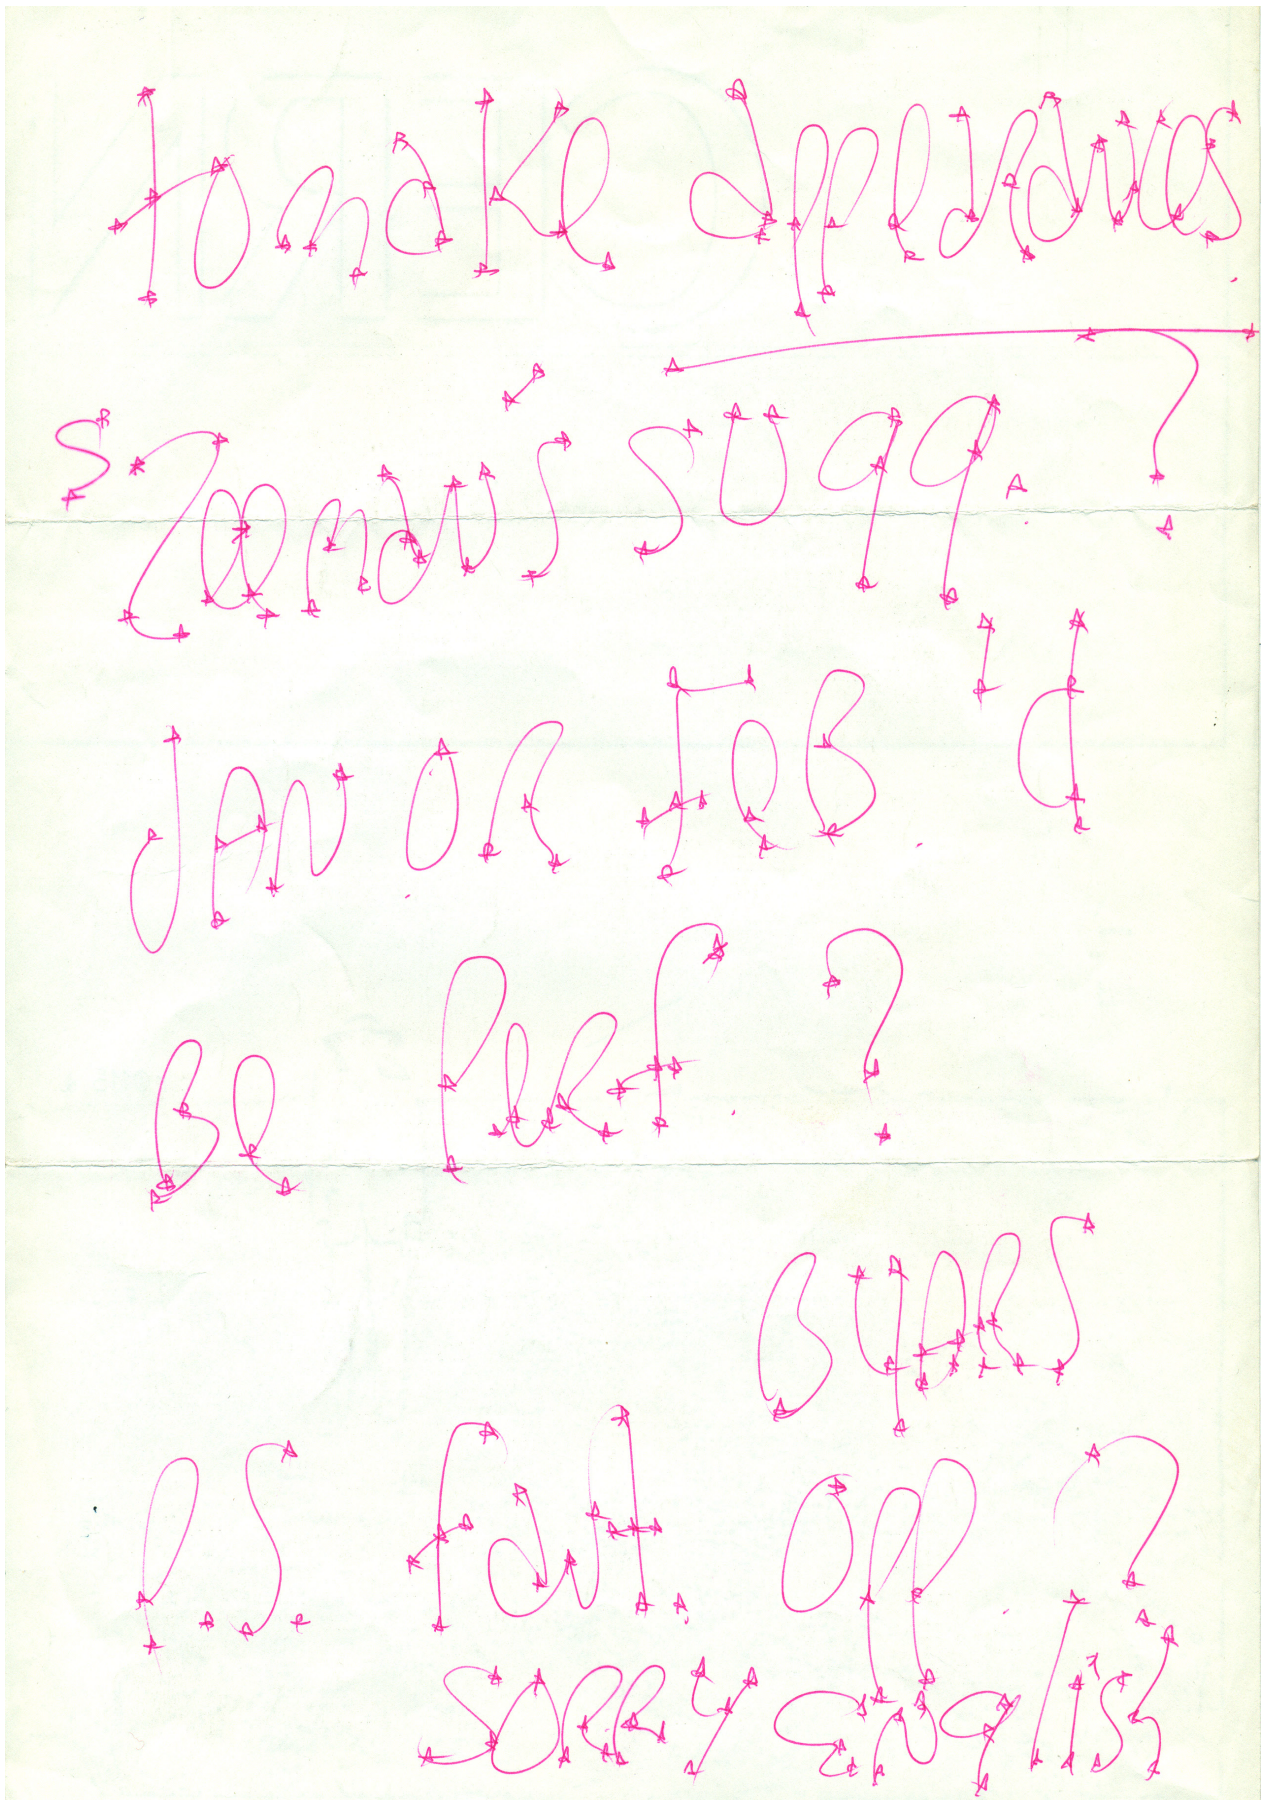 to make appearances
s Zeema's sugg. ?
JAN OR FEB. 'd
Be PERF. ?
BYARS
P.S. fat. opp. ?
SORRY English